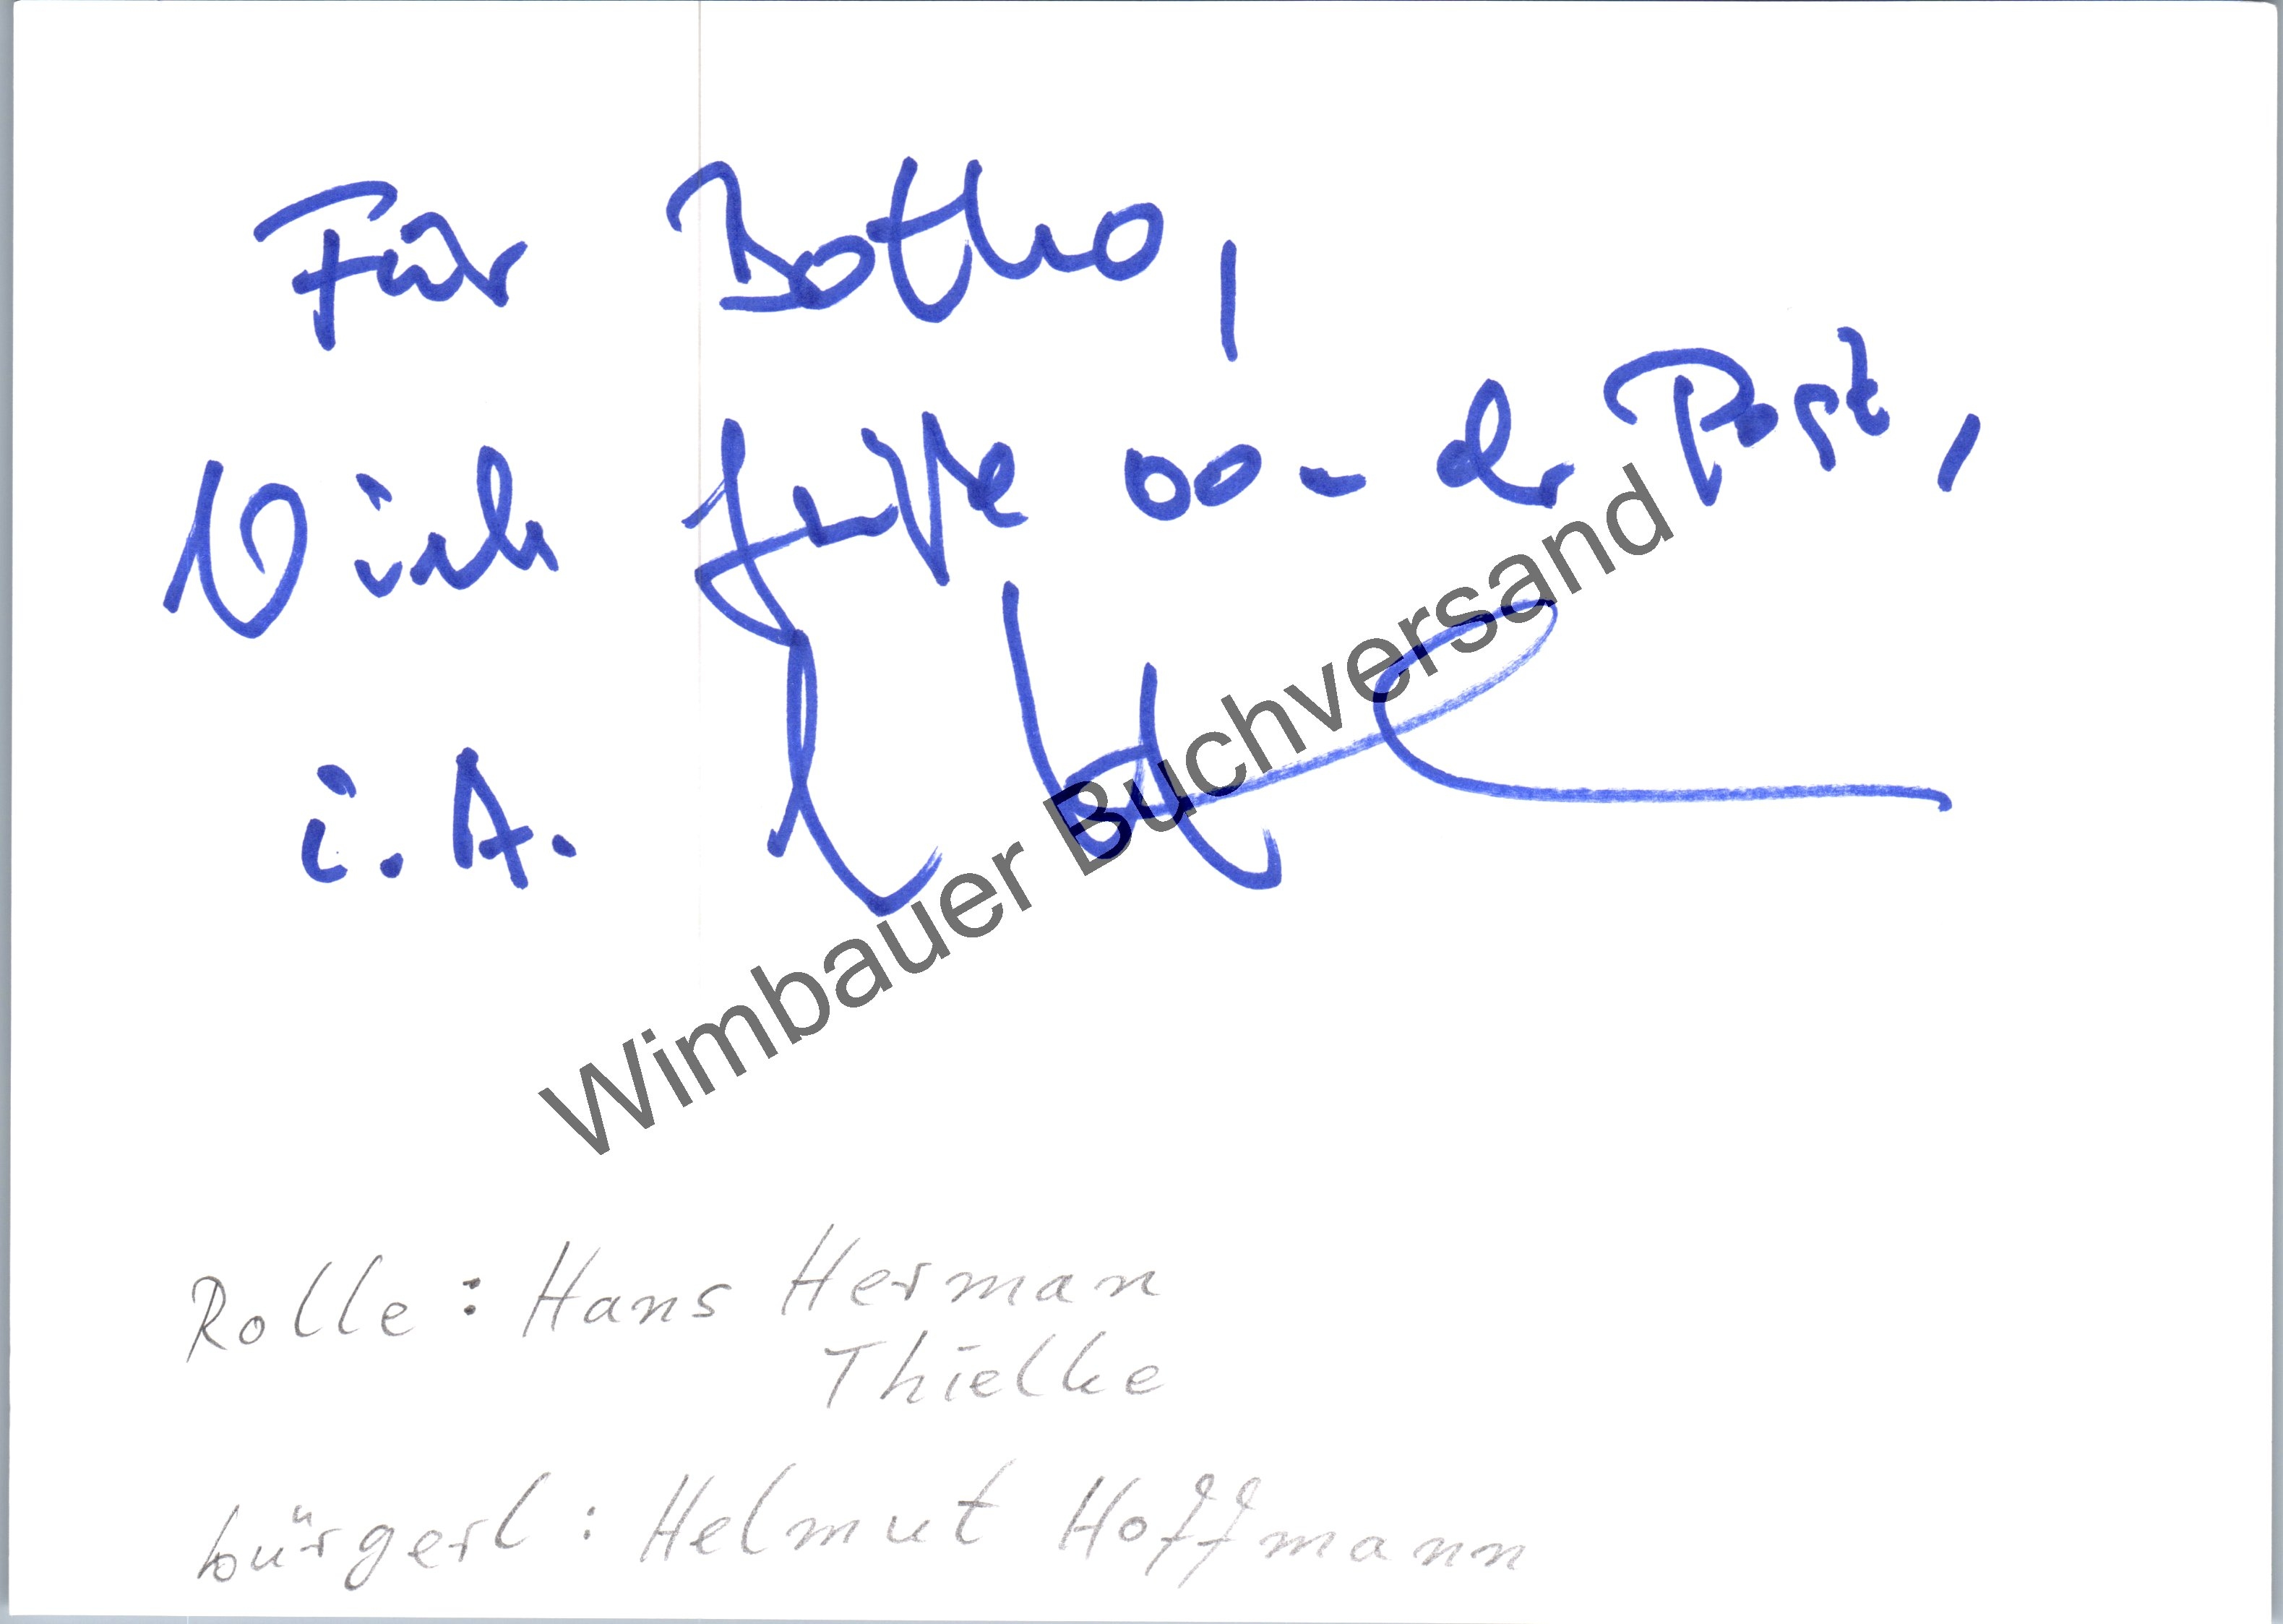 Für Botho,
Viele Grüße von der Post,
i. A.
Wimbauer Buchversand
Rolle: Hans Herman
Thielke
bürgerl: Helmut Hoffmann